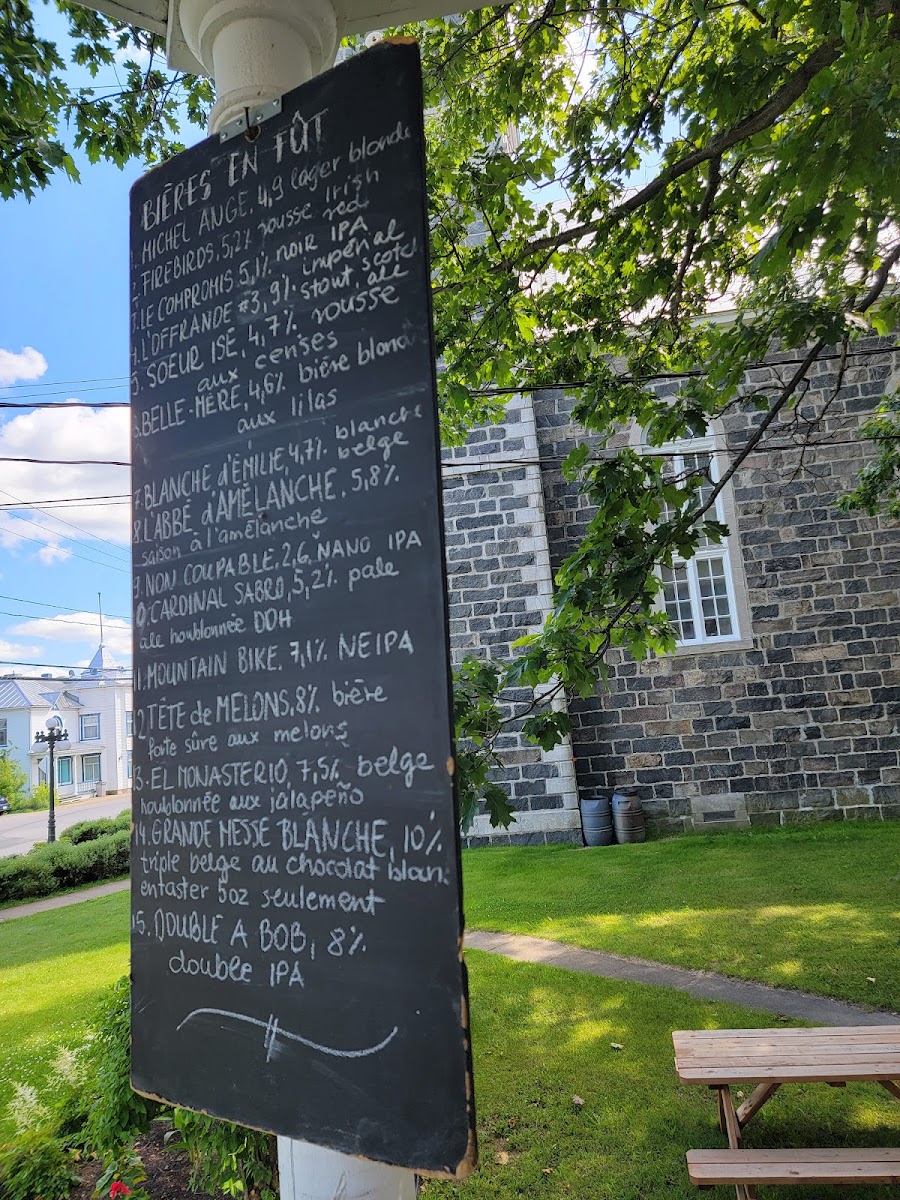 BIÉRES EN FÛT
MICHEL ANGE, 4,9 lager blonde
FIREBIRDS, 5,2% rousse Irish
red
3. LE COMPROMIS 5,1% NOIR IPA
4. L'OFFRANDE #3, 9% impérial
stout, scotch
ale
5. SOEUR ISE, 4,7% rousse
aux cerises
6. BELLE-MÈRE, 4,6% bière blonde
aux lilas
7. BLANCHE d'ÉMILIE, 4,7% blanche
belge
8. L'ABBÉ d'AMÉLANCHE, 5,8%
saison à l'amélanche
9. NON COUPABLE, 2,6, NANO IPA
0. CARDINAL SABRO, 5,2% pale
ale houblonnée DDH
1. MOUNTAIN BIKE, 7,1% NEIPA
2. TÊTE de MELONS, 8% bière
forte sûre aux melons
3. EL MONASTERIO, 7,5% belge
houblonnée aux jalapeño
14. GRANDE MESSE BLANCHE, 10%
triple belge au chocolat blanc
en taster 5oz seulement
15. DOUBLE A BOB, 8%
double IPA